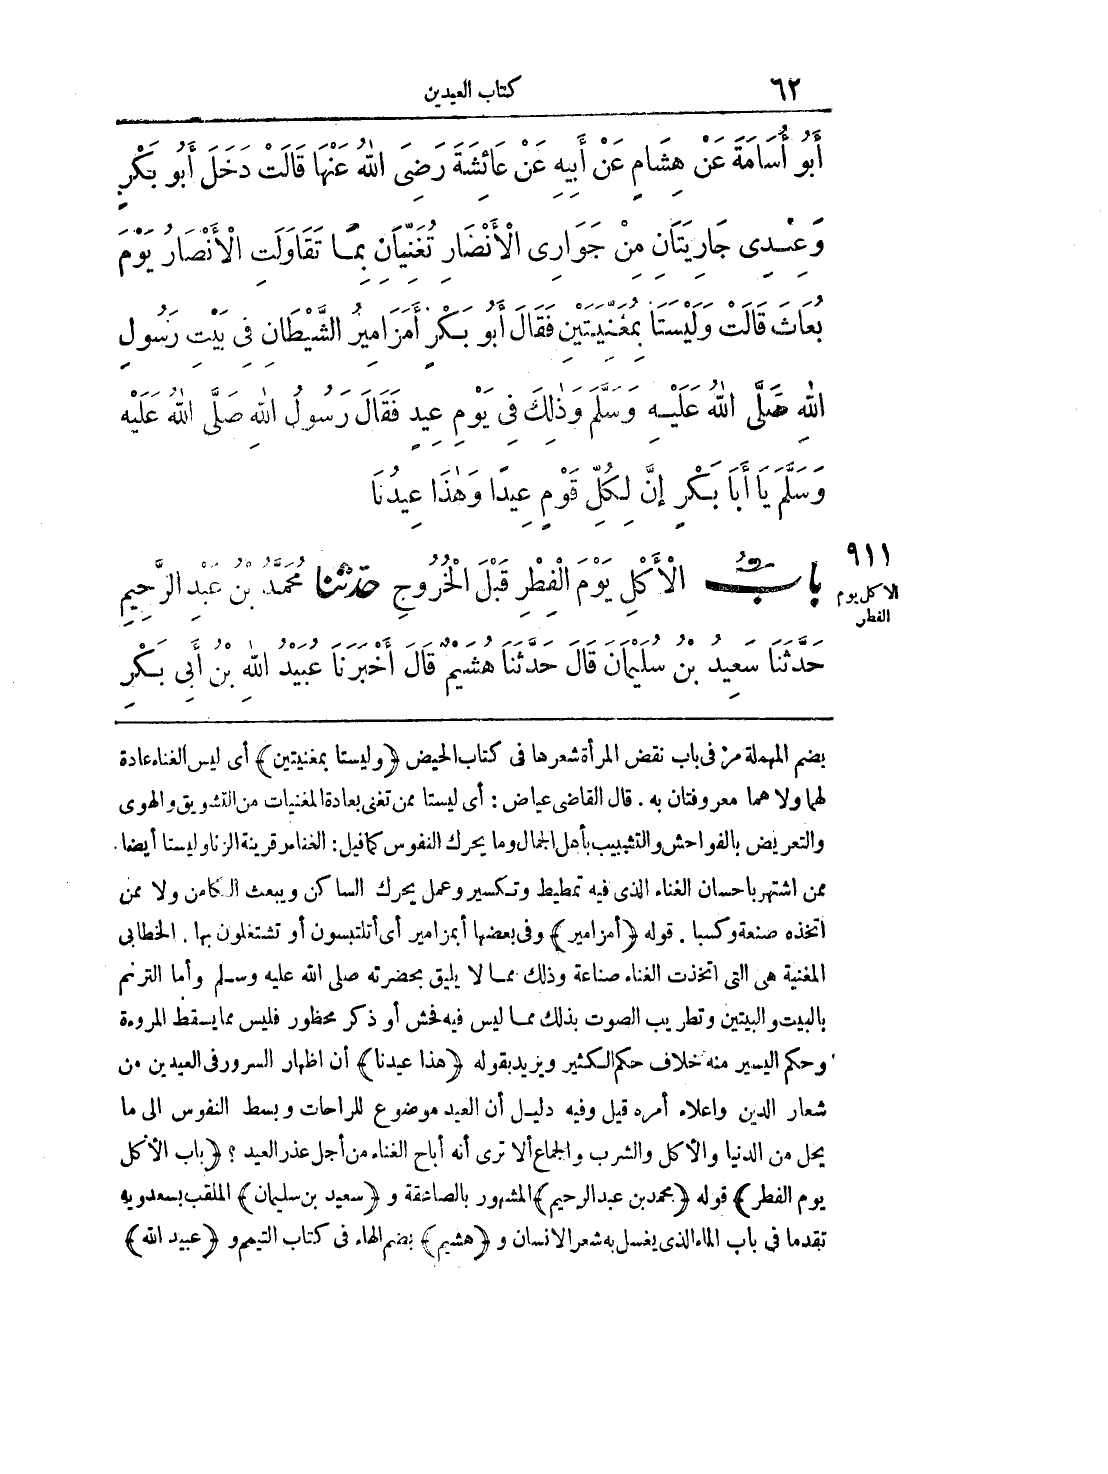 ٦٢ كتاب العيدين
أَبُو أُسَامَةَ عَنْ هِشَامٍ عَنْ أَبِيهِ عَنْ عَائِشَةَ رَضِىَ اللهُ عَنْهَا قَالَتْ دَخَلَ أَبُو بَكْرٍ
وَعِنْدِى جَارِيَتَانِ مِنْ جَوَارِى الْأَنْصَارِ تُغَنِّيَانِ بِمَا تَقَاوَلَتِ الْأَنْصَارُ يَوْمَ
بُعَاثَ قَالَتْ وَلَيْسَتَا بِمُغَنِّيَتَيْنِ فَقَالَ أَبُو بَكْرٍ أَمَزَامِيرُ الشَّيْطَانِ فِى بَيْتِ رَسُولِ
اللهِ صَلَّى اللهُ عَلَيْهِ وَسَلَّمَ وَذٰلِكَ فِى يَوْمِ عِيدٍ فَقَالَ رَسُولُ اللهِ صَلَّى اللهُ عَلَيْهِ
وَسَلَّمَ يَا أَبَا بَكْرٍ إِنَّ لِكُلِّ قَوْمٍ عِيدًا وَهٰذَا عِيدُنَا
٩١١
الاكل يوم
الفطر
بَابُ الْأَكْلِ يَوْمَ الْفِطْرِ قَبْلَ الْخُرُوجِ حَدَّثَنَا مُحَمَّدُ بْنُ عَبْدِ الرَّحِيمِ
حَدَّثَنَا سَعِيدُ بْنُ سُلَيْمَانَ قَالَ حَدَّثَنَا هُشَيْمٌ قَالَ أَخْبَرَنَا عُبَيْدُ اللهِ بْنُ أَبِى بَكْرِ
بضم المهملة مر فى باب نقض المرأة شعرها فى كتاب الحيض ﴿وليستا بمغنيتين﴾ أى ليس الغناء عادة
لهما ولا هما معروفتان به . قال القاضى عياض : أى ليستا ممن تغنى بعادة المغنيات من التشويق والهوى
والتعريض بالفواحش والتشبيب بأهل الجمال وما يحرك النفوس كما قيل : الغناء رقية الزنا وليستا أيضا
ممن اشتهر باحسان الغناء الذى فيه تمطيط وتكسير وعمل يحرك الساكن ويبعث الكامن ولا ممن
اتخذه صنعة وكسبا . قوله ﴿أمزامير﴾ وفى بعضها أبمزامير أى أتلتبسون أو تشتغلون بها . الخطابى
المغنية هى التى اتخذت الغناء صناعة وذلك مما لا يليق بحضرته صلى الله عليه وسلم وأما الترنم
بالبيت والبيتين وتطريب الصوت بذلك مما ليس فيه فحش أو ذكر محظور فليس مما يسقط المروءة
وحكم اليسير منه خلاف حكم الكثير ويريد بقوله ﴿هذا عيدنا﴾ أن اظهار السرور فى العيدين من
شعار الدين واعلاء أمره قيل وفيه دليل أن العيد موضوع للراحات وبسط النفوس الى ما
يحل من الدنيا والأكل والشرب والجماع ألا ترى أنه أباح الغناء من أجل عذر العيد ؟ ﴿باب الأكل
يوم الفطر﴾ قوله ﴿محمد بن عبد الرحيم﴾ المشهور بالصاعقة و ﴿سعيد بن سليمان﴾ الملقب بسعدويه
تقدما فى باب الماء الذى يغسل به شعر الانسان و ﴿هشيم﴾ بضم الهاء فى كتاب التيمم و ﴿عبيد الله﴾